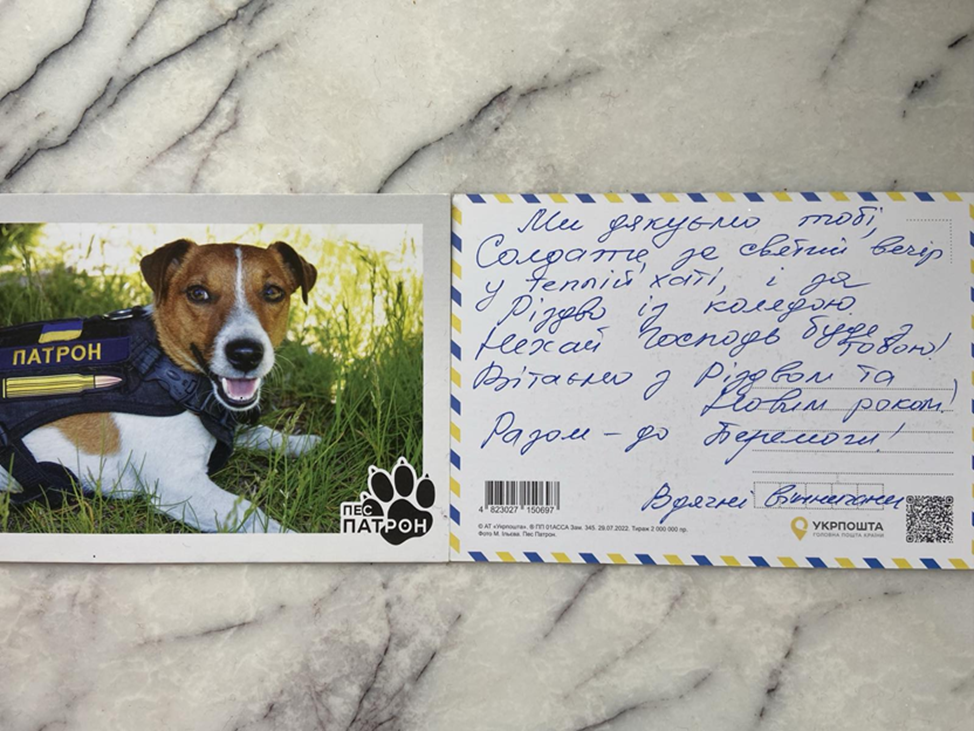 ПАТРОН
ПЕС
ПАТРОН
Ми дякуємо тобі,
Солдате, за святий вечір
у теплій хаті, і за
Різдво із колядою.
Нехай Господь буде з
тобою!
Вітаємо з Різдвом та
Новим роком!
Разом – до Перемоги!
Вдячні вінничани
4 823027 150697
© АТ «Укрпошта». ® ПП 01АССА Зам. 345. 29.07.2022. Тираж 2 000 000 пр.
Фото М. Ільєва. Пес Патрон.
УКРПОШТА
ГОЛОВНА ПОШТА КРАЇНИ